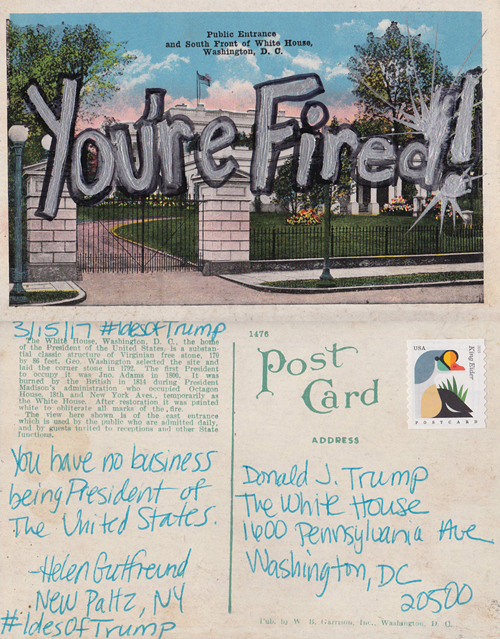 Public Entrance
and South Front of White House,
Washington, D. C.
You're Fired!
3/15/17 #IdesofTrump
The White House, Washington, D. C., the home
of the President of the United States, is a substan-
tial classic structure of Virginian free stone, 170
by 86 feet. Geo. Washington selected the site and
laid the corner stone in 1792. The first President
to occupy it was Jno. Adams in 1800. It was
burned by the British in 1814 during President
Madison's administration who occupied Octagon
House, 18th and New York Aves., temporarily as
the White House. After restoration it was painted
white to obliterate all marks of the fire.
The view here shown is of the east entrance
which is used by the public who are admitted daily,
and by guests invited to receptions and other State
functions.
You have no business
being President of
The United States.
-Helen Gutfreund
New Paltz, NY
#IdesOfTrump
1476
Post
Card
USA
King Eider
POSTCARD
ADDRESS
Donald J. Trump
The White House
1600 Pennsylvania Ave
Washington, DC
20500
Pub. by W. B. Garrison, Inc., Washington, D. C.